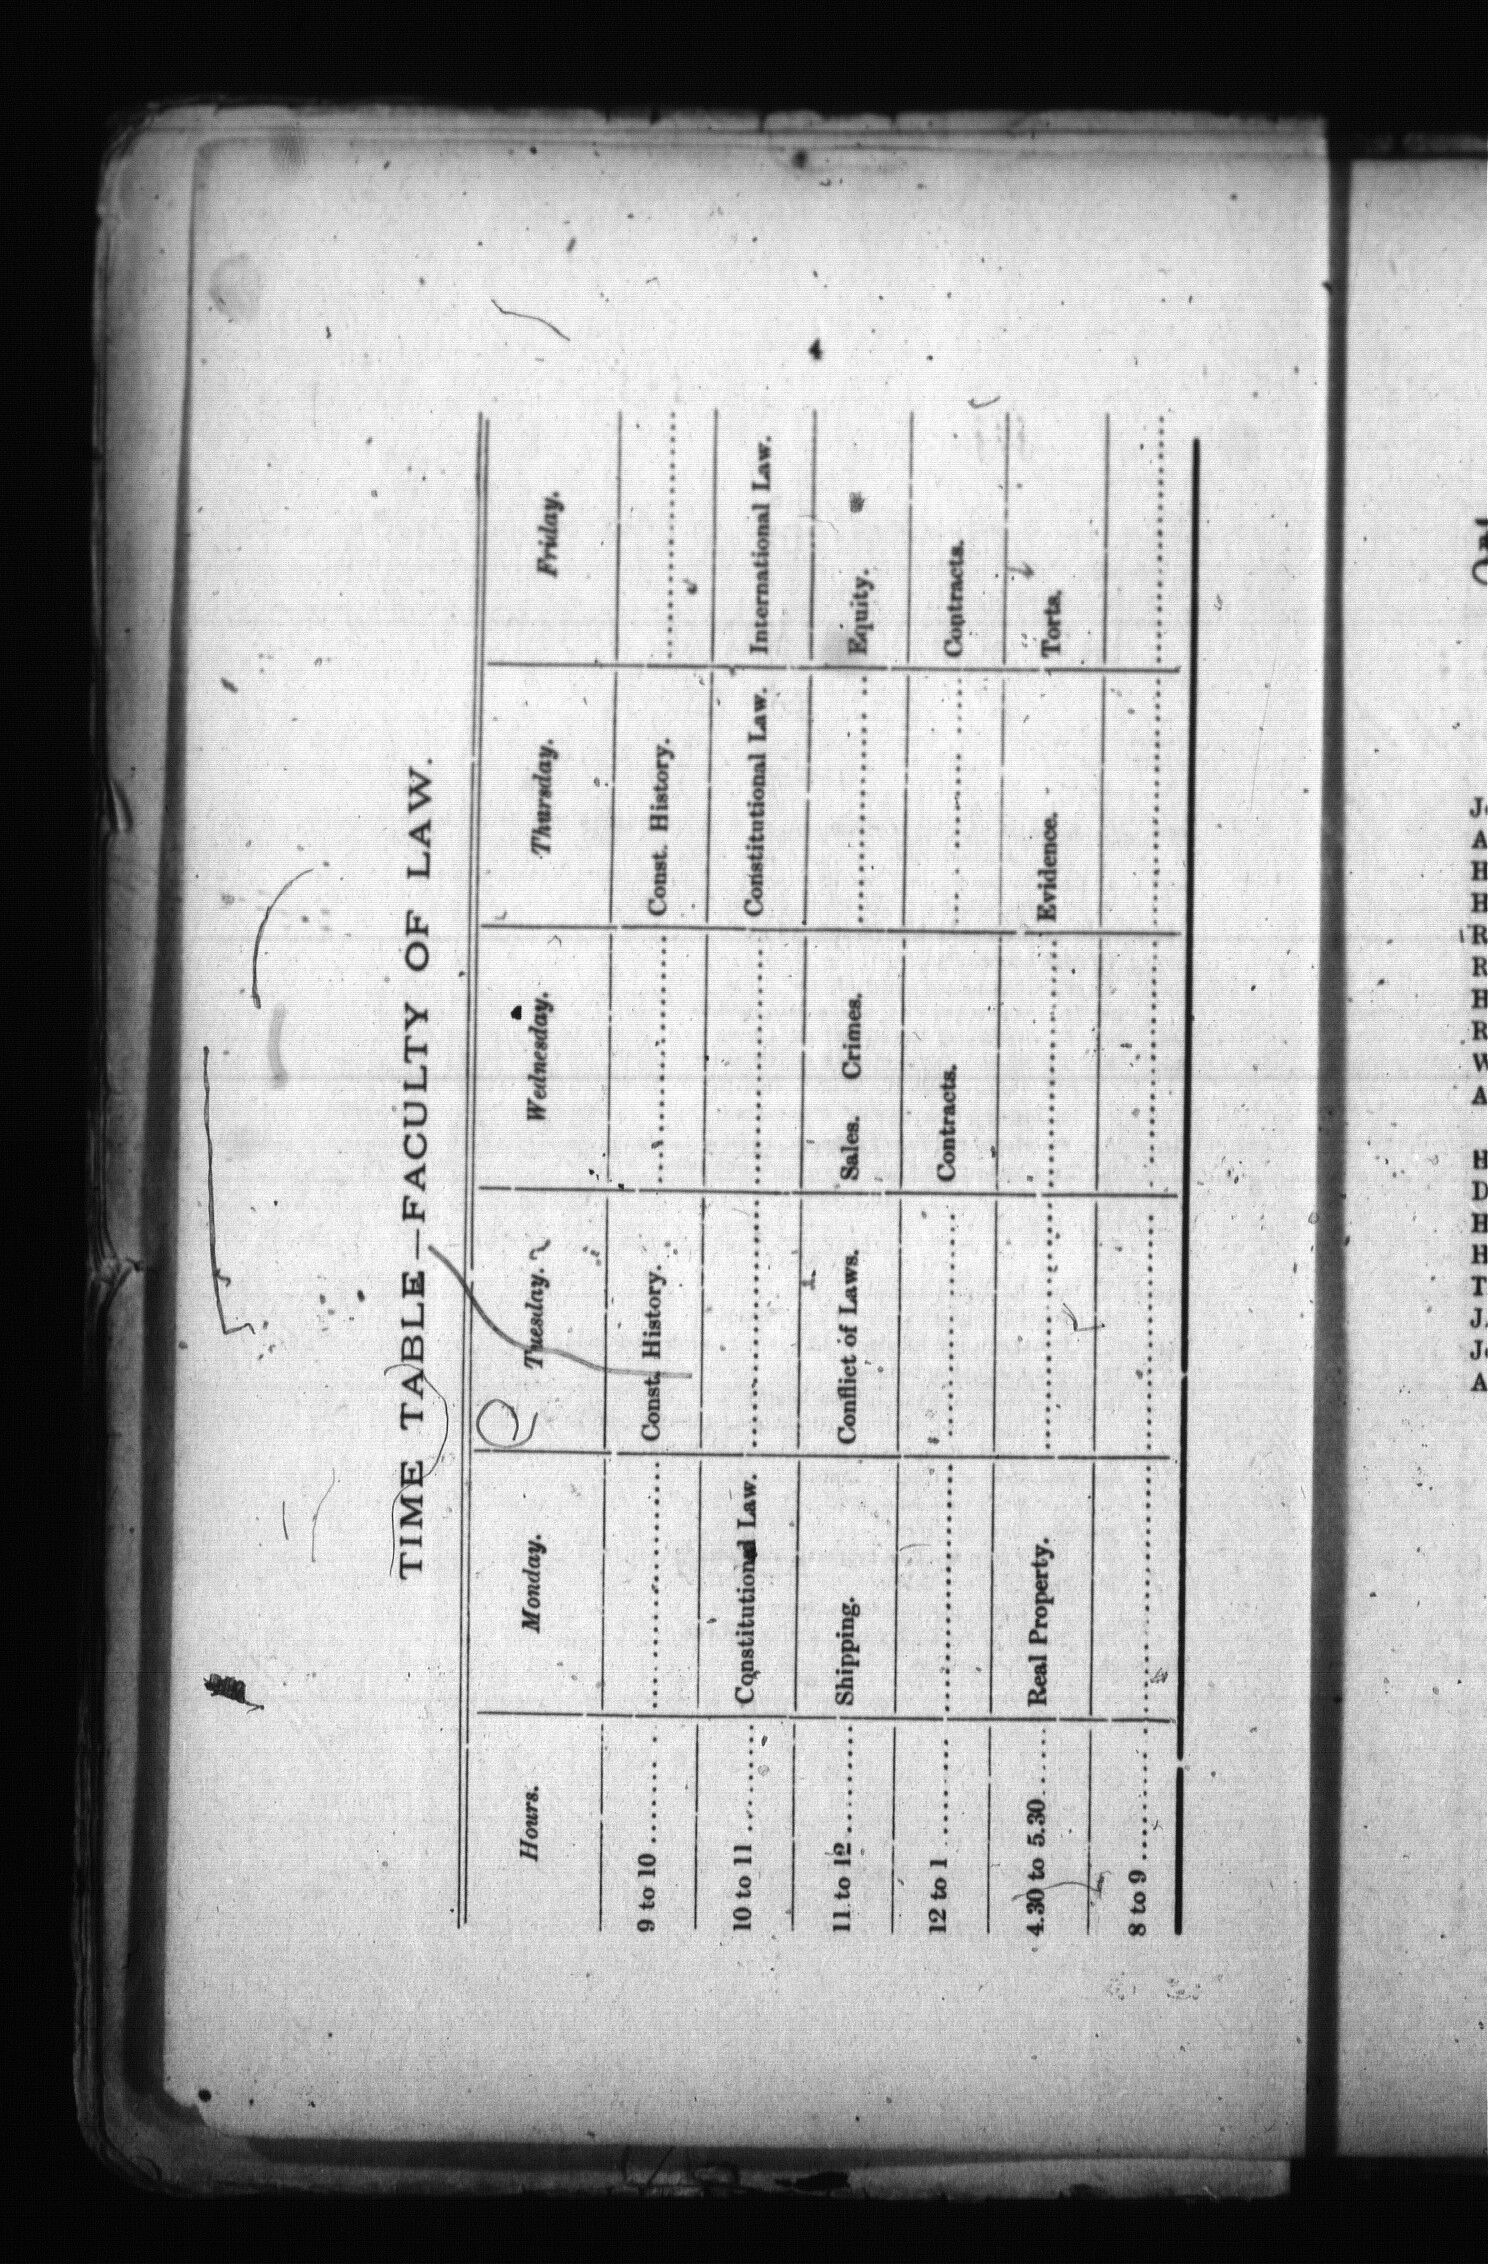 TIME TABLE—FACULTY OF LAW.
Hours. Monday. Tuesday. Wednesday. Thursday. Friday.
9 to 10 ........ Const. History. Const. History.
10 to 11 ........ Constitutional Law. Constitutional Law. International Law.
11 to 12 ........ Shipping. Conflict of Laws. Sales. Crimes. Equity.
12 to 1 ........ Contracts. Contracts.
4.30 to 5.30 ...... Real Property. Evidence. Torts.
8 to 9 ........